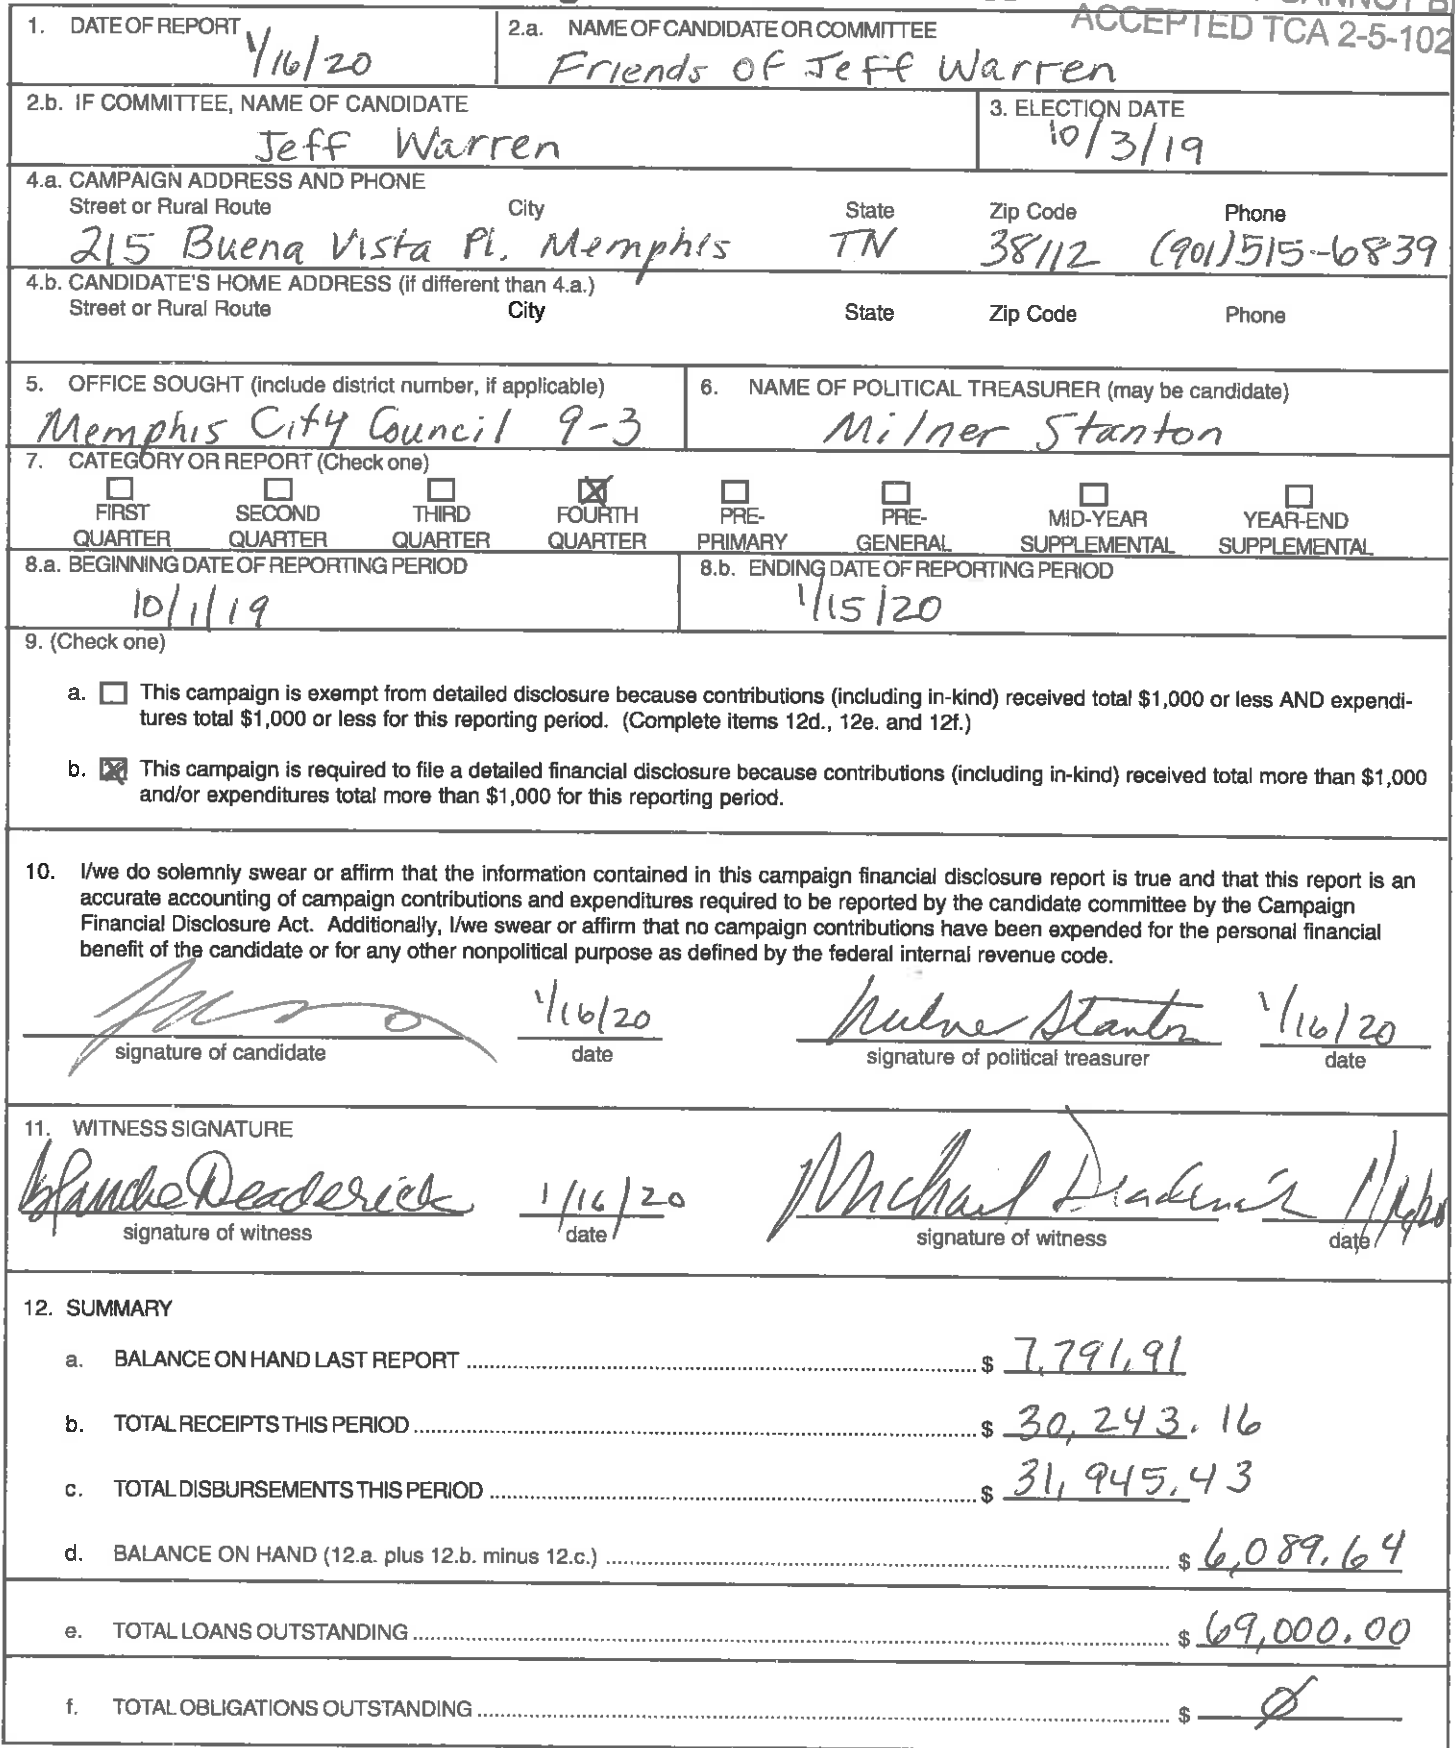 ACCEPTED TCA 2-5-102
1. DATE OF REPORT 2.a. NAME OF CANDIDATE OR COMMITTEE
1/16/20 Friends of Jeff Warren
2.b. IF COMMITTEE, NAME OF CANDIDATE 3. ELECTION DATE
Jeff Warren 10/3/19
4.a. CAMPAIGN ADDRESS AND PHONE
Street or Rural Route City State Zip Code Phone
215 Buena Vista Pl. Memphis TN 38112 (901)515-6839
4.b. CANDIDATE'S HOME ADDRESS (if different than 4.a.)
Street or Rural Route City State Zip Code Phone
5. OFFICE SOUGHT (include district number, if applicable) 6. NAME OF POLITICAL TREASURER (may be candidate)
Memphis City Council 9-3 Milner Stanton
7. CATEGORY OR REPORT (Check one)
FIRST SECOND THIRD FOURTH PRE- PRE- MID-YEAR YEAR-END
QUARTER QUARTER QUARTER QUARTER PRIMARY GENERAL SUPPLEMENTAL SUPPLEMENTAL
8.a. BEGINNING DATE OF REPORTING PERIOD 8.b. ENDING DATE OF REPORTING PERIOD
10/1/19 1/15/20
9. (Check one)
a. This campaign is exempt from detailed disclosure because contributions (including in-kind) received total $1,000 or less AND expendi-
tures total $1,000 or less for this reporting period. (Complete items 12d., 12e. and 12f.)
b. This campaign is required to file a detailed financial disclosure because contributions (including in-kind) received total more than $1,000
and/or expenditures total more than $1,000 for this reporting period.
10. I/we do solemnly swear or affirm that the information contained in this campaign financial disclosure report is true and that this report is an
accurate accounting of campaign contributions and expenditures required to be reported by the candidate committee by the Campaign
Financial Disclosure Act. Additionally, I/we swear or affirm that no campaign contributions have been expended for the personal financial
benefit of the candidate or for any other nonpolitical purpose as defined by the federal internal revenue code.
1/16/20 Milner Stanton 1/16/20
signature of candidate date signature of political treasurer date
11. WITNESS SIGNATURE
Blanche Deaderick 1/16/20 Michael Deaderick 1/16/20
signature of witness date signature of witness date
12. SUMMARY
a. BALANCE ON HAND LAST REPORT $ 7,791.91
b. TOTAL RECEIPTS THIS PERIOD $ 30,243.16
c. TOTAL DISBURSEMENTS THIS PERIOD $ 31,945.43
d. BALANCE ON HAND (12.a. plus 12.b. minus 12.c.) $ 6,089.64
e. TOTAL LOANS OUTSTANDING $ 69,000.00
f. TOTAL OBLIGATIONS OUTSTANDING $ Ø